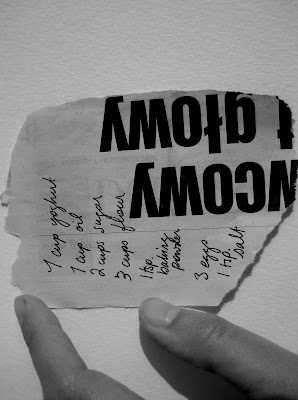 1 cup yoghurt
1 cup oil
2 cups sugar
3 cups flour
1 tsp.
baking
powder
3 eggs
1 tsp salt
głowy